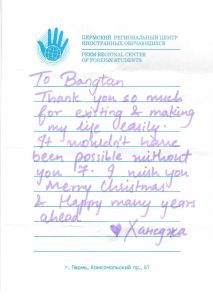 ПЕРМСКИЙ РЕГИОНАЛЬНЫЙ ЦЕНТР
ИНОСТРАННЫХ ОБУЧАЮЩИХСЯ
PERM REGIONAL CENTER
OF FOREIGN STUDENTS
To Bangtan
Thank you so much
for exiting & making
my life easily.
It wouldn't have
been possible without
you 7. I wish you
Merry Christmas
& Happy many years
ahead.
♥ Ханаджа
г. Пермь, Комсомольский пр., 61